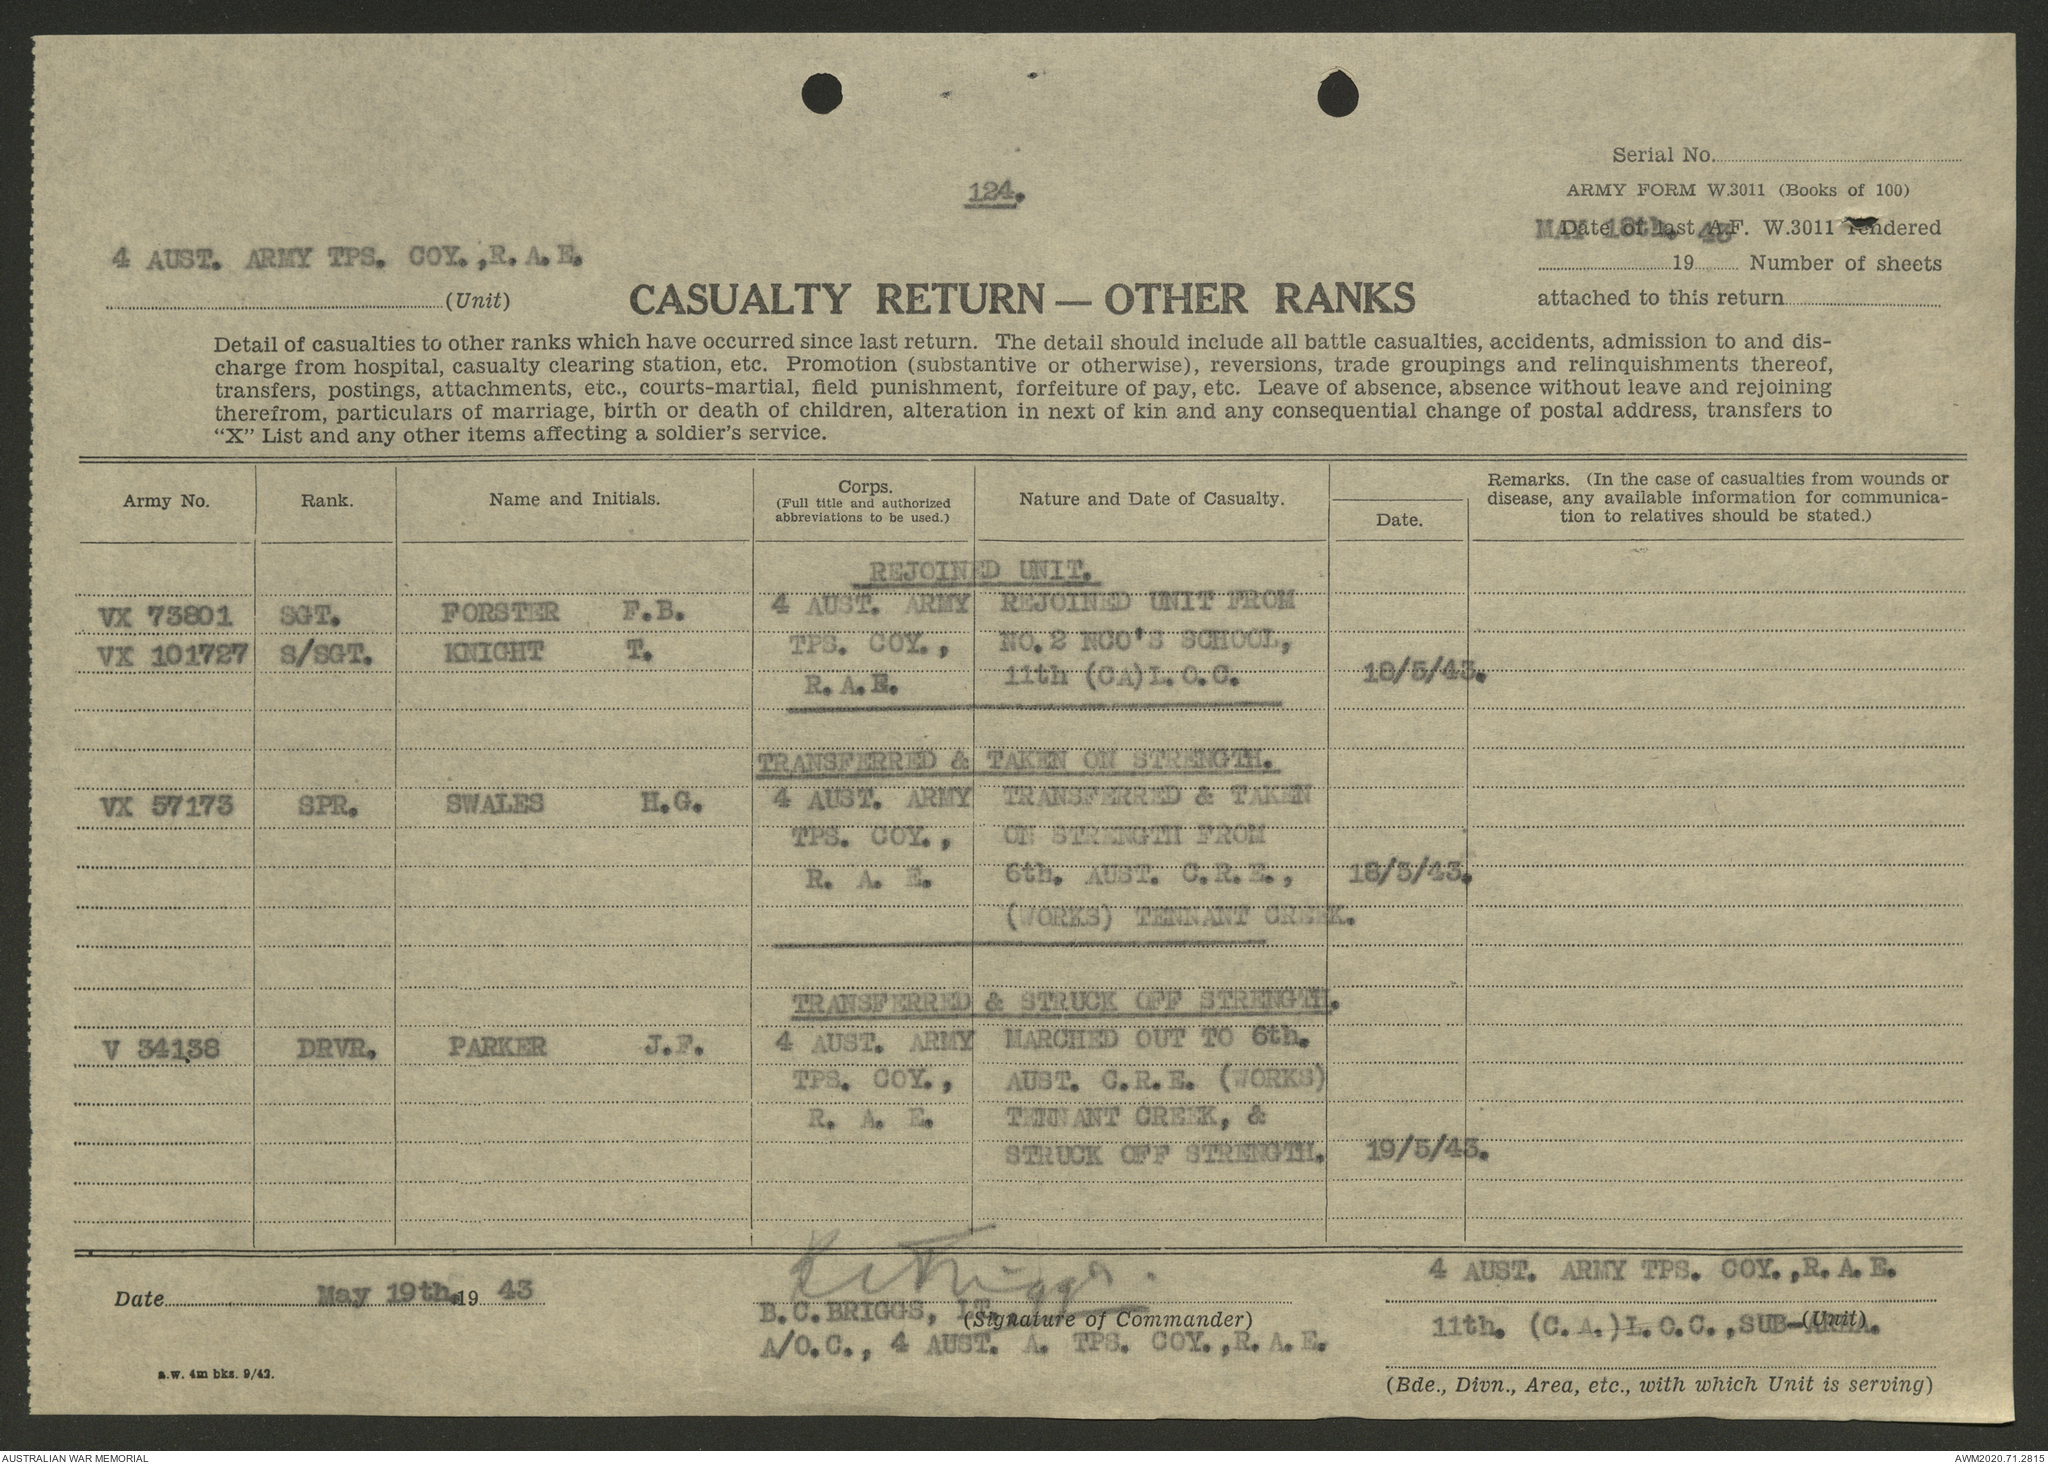 124.
Serial No.
ARMY FORM W.3011 (Books of 100)
Date of last A.F. W.3011 rendered
MAY 18th. 43
19 Number of sheets
attached to this return
4 AUST. ARMY TPS. COY.,R.A.E.
(Unit)
CASUALTY RETURN — OTHER RANKS
Detail of casualties to other ranks which have occurred since last return. The detail should include all battle casualties, accidents, admission to and dis-
charge from hospital, casualty clearing station, etc. Promotion (substantive or otherwise), reversions, trade groupings and relinquishments thereof,
transfers, postings, attachments, etc., courts-martial, field punishment, forfeiture of pay, etc. Leave of absence, absence without leave and rejoining
therefrom, particulars of marriage, birth or death of children, alteration in next of kin and any consequential change of postal address, transfers to
“X” List and any other items affecting a soldier’s service.
Army No. Rank. Name and Initials. Corps. (Full title and authorized abbreviations to be used.) Nature and Date of Casualty. Date. Remarks. (In the case of casualties from wounds or disease, any available information for communica-tion to relatives should be stated.)
REJOINED UNIT.
VX 73801 SGT. FORSTER F.B. 4 AUST. ARMY REJOINED UNIT FROM
VX 101727 S/SGT. KNIGHT T. TPS. COY., NO.2 NCO'S SCHOOL,
R.A.E. 11th (CA)L.O.C. 18/5/43.
TRANSFERRED & TAKEN ON STRENGTH.
VX 57173 SPR. SWALES H.G. 4 AUST. ARMY TRANSFERRED & TAKEN
TPS. COY., ON STRENGTH FROM
R. A. E. 6th. AUST. C.R.E., 18/5/43.
(WORKS) TENNANT CREEK.
TRANSFERRED & STRUCK OFF STRENGTH.
V 34138 DRVR. PARKER J.F. 4 AUST. ARMY MARCHED OUT TO 6th.
TPS. COY., AUST. C.R.E. (WORKS)
R. A. E. TENNANT CREEK, &
STRUCK OFF STRENGTH. 19/5/43.
Date May 19th. 19 43
B.C.BRIGGS, LT.
(Signature of Commander)
A/O.C., 4 AUST. A. TPS. COY.,R.A.E.
4 AUST. ARMY TPS. COY.,R.A.E.
(Unit)
11th. (C.A.)L.O.C.,SUB-AREA.
(Bde., Divn., Area, etc., with which Unit is serving)
a.w. 4m bks. 9/42.
AUSTRALIAN WAR MEMORIAL
AWM2020.71.2815